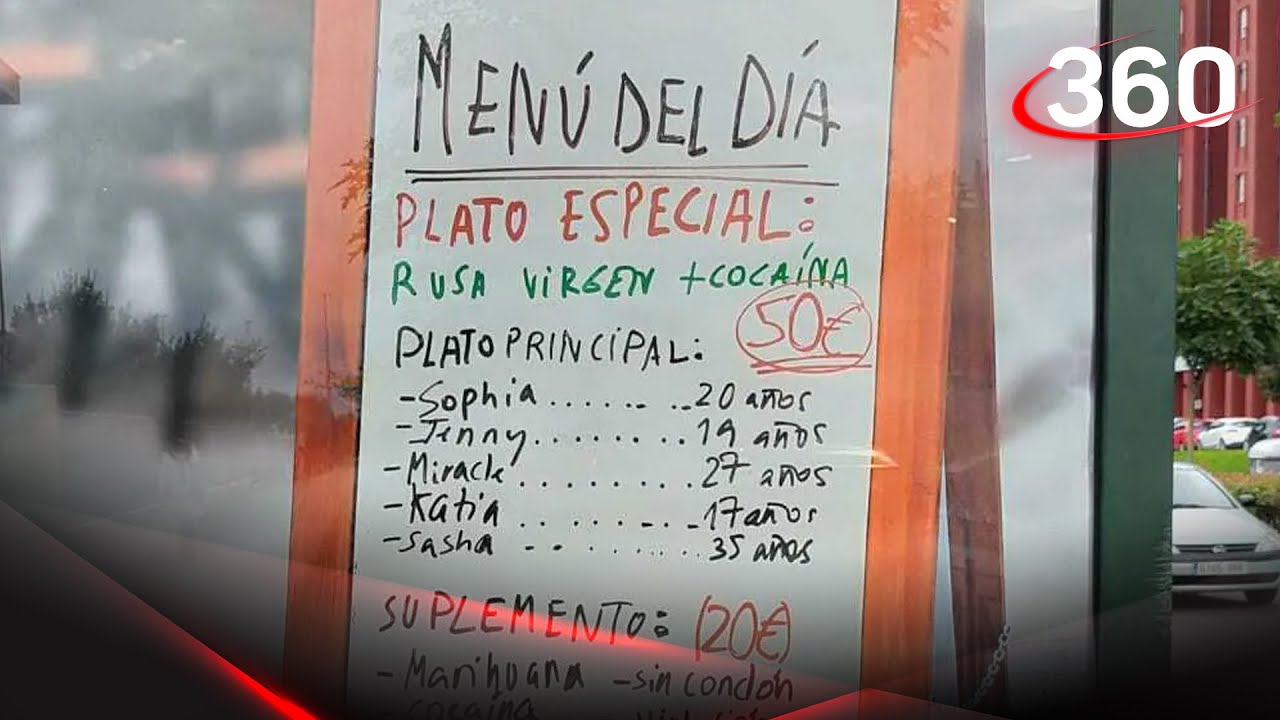 360
MENÚ DEL DÍA
PLATO ESPECIAL:
RUSA VIRGEN + COCAÍNA
50€
PLATO PRINCIPAL:
- Sophia ........ 20 años
- Jenny ........ 19 años
- Miracle ......... 27 años
- Katia ....... 17 años
- Sasha ........ 35 años
SUPLEMENTO: (20€)
- Marihuana - sin condón
- cocaína